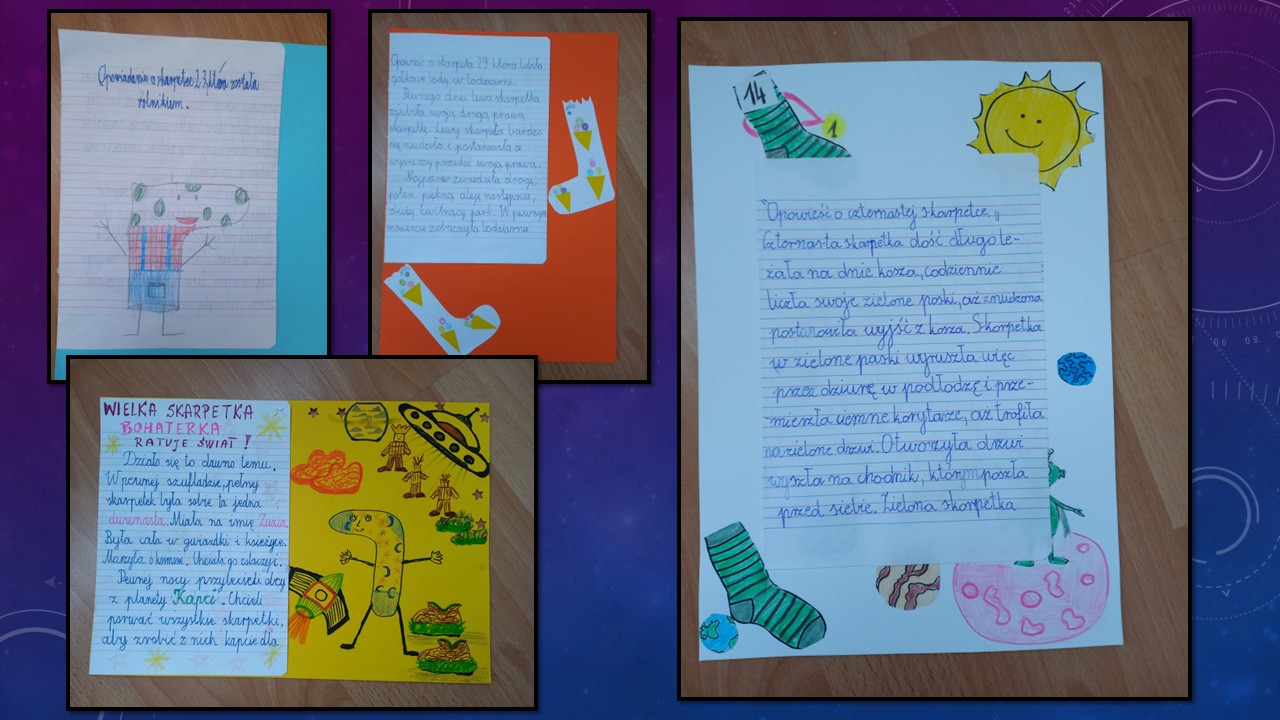 Opowiadanie o skarpetce 23, która została
rolnikiem.
Opowieść o skarpeta 29 która lubiła
gałkowe lody w lodziarni.
Pewnego dnia lewa skarpetka
zgubiła swoją drugą prawą
skarpetkę. Lewy skarpeta bardzo
się nudziło i postanowiła
wyruszy poszukać swoją prawą.
Najpierw zwiedziła drogę,
potem piękną aleję następnie,
duży kwitnący park. W pewnym
momencie zobaczyła lodziarnie
WIELKA SKARPETKA
BOHATERKA
RATUJE ŚWIAT!
Działo się to dawno temu.
W pewnej szufladzie, pełnej
skarpetek była sobie ta jedna
dwunasta. Miała na imię Zuzia.
Była cała w gwiazdki i księżyce.
Marzyła o kosmosie. Chciała go zobaczyć.
Pewnej nocy przylecieli obcy
z planety Kapci. Chcieli
porwać wszystkie skarpetki,
aby zrobić z nich kapcie dla
14
1
"Opowieść o czternastej skarpetce„
Czternasta skarpetka dość długo le-
żała na dnie kosza, codziennie
liczła swoje zielone paski, aż znudzona
postanowiła wyjść z kosza. Skarpetka
w zielone paski wyruszła więc
przez dziurę w podłodzę i prze-
mierzła ciemne korytarze, aż trafiła
na zielone drzwi. Otworzyła drzwi
wyszła na chodnik, którym poszła
przed siebie. Zielona skarpetka